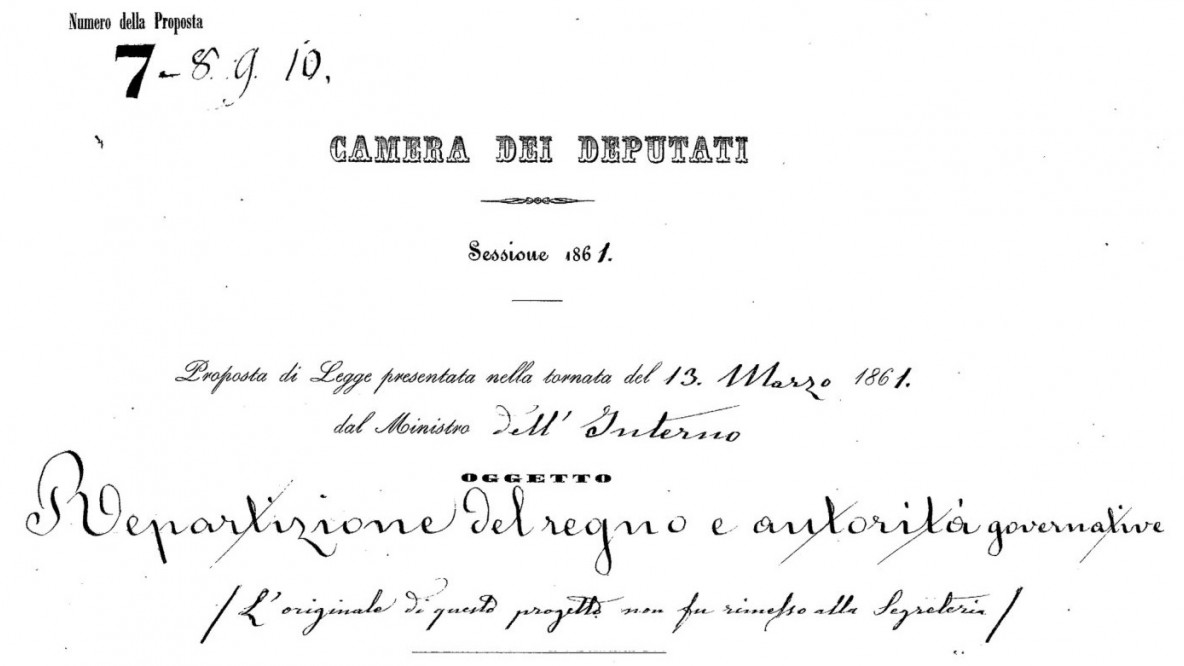 Numero della Proposta
7-8. 9. 10.
CAMERA DEI DEPUTATI
Sessione 1861.
Proposta di Legge presentata nella tornata del 13. Marzo 1861.
dal Ministro dell' Interno
OGGETTO
Repartizione del regno e autorità governative
/ L'originale di questo progetto non fu rimesso alla Segreteria /